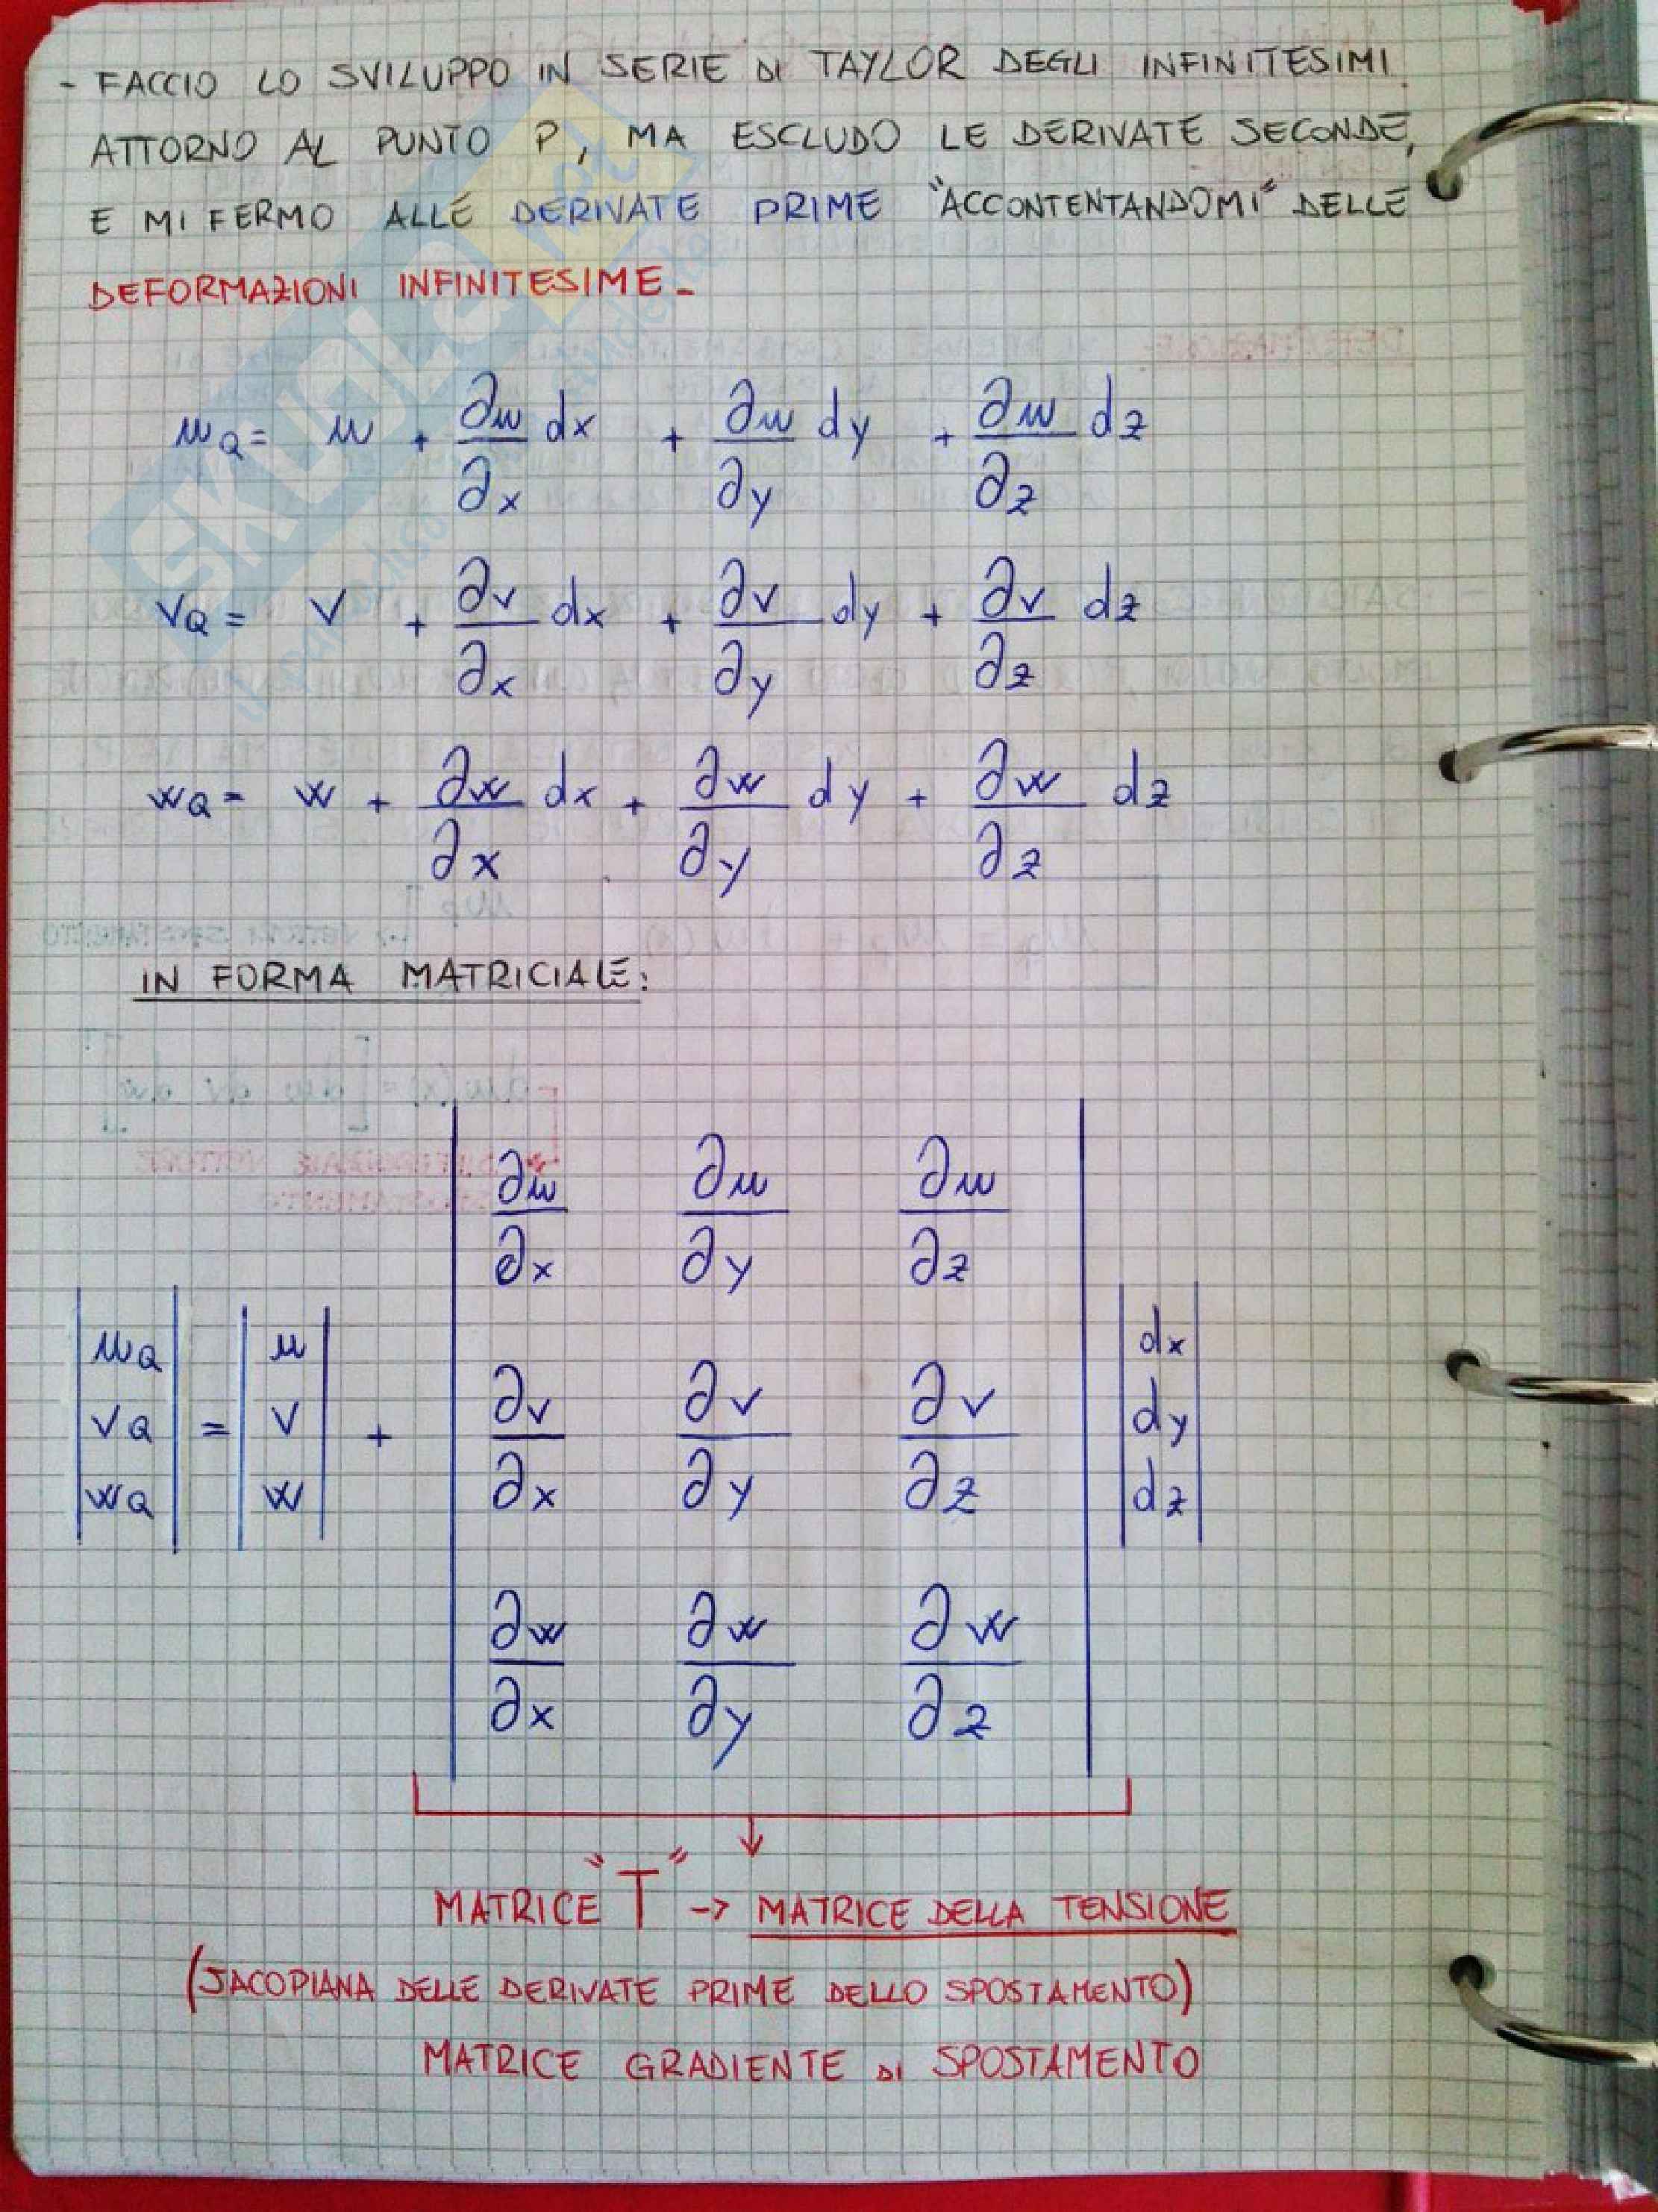 - FACCIO LO SVILUPPO IN SERIE DI TAYLOR DEGLI INFINITESIMI
ATTORNO AL PUNTO P, MA ESCLUDO LE DERIVATE SECONDE,
E MI FERMO ALLE DERIVATE PRIME "ACCONTENTANDOMI" DELLE
DEFORMAZIONI INFINITESIME -
u_Q = u + ∂u/∂x dx + ∂u/∂y dy + ∂u/∂z dz
v_Q = v + ∂v/∂x dx + ∂v/∂y dy + ∂v/∂z dz
w_Q = w + ∂w/∂x dx + ∂w/∂y dy + ∂w/∂z dz
IN FORMA MATRICIALE:
|u_Q| |u| |∂u/∂x ∂u/∂y ∂u/∂z| |dx|
|v_Q| = |v| + |∂v/∂x ∂v/∂y ∂v/∂z| |dy|
|w_Q| |w| |∂w/∂x ∂w/∂y ∂w/∂z| |dz|
↓
MATRICE "T" -> MATRICE DELLA TENSIONE
(JACOPIANA DELLE DERIVATE PRIME DELLO SPOSTAMENTO)
MATRICE GRADIENTE DI SPOSTAMENTO
SKUOLA.net